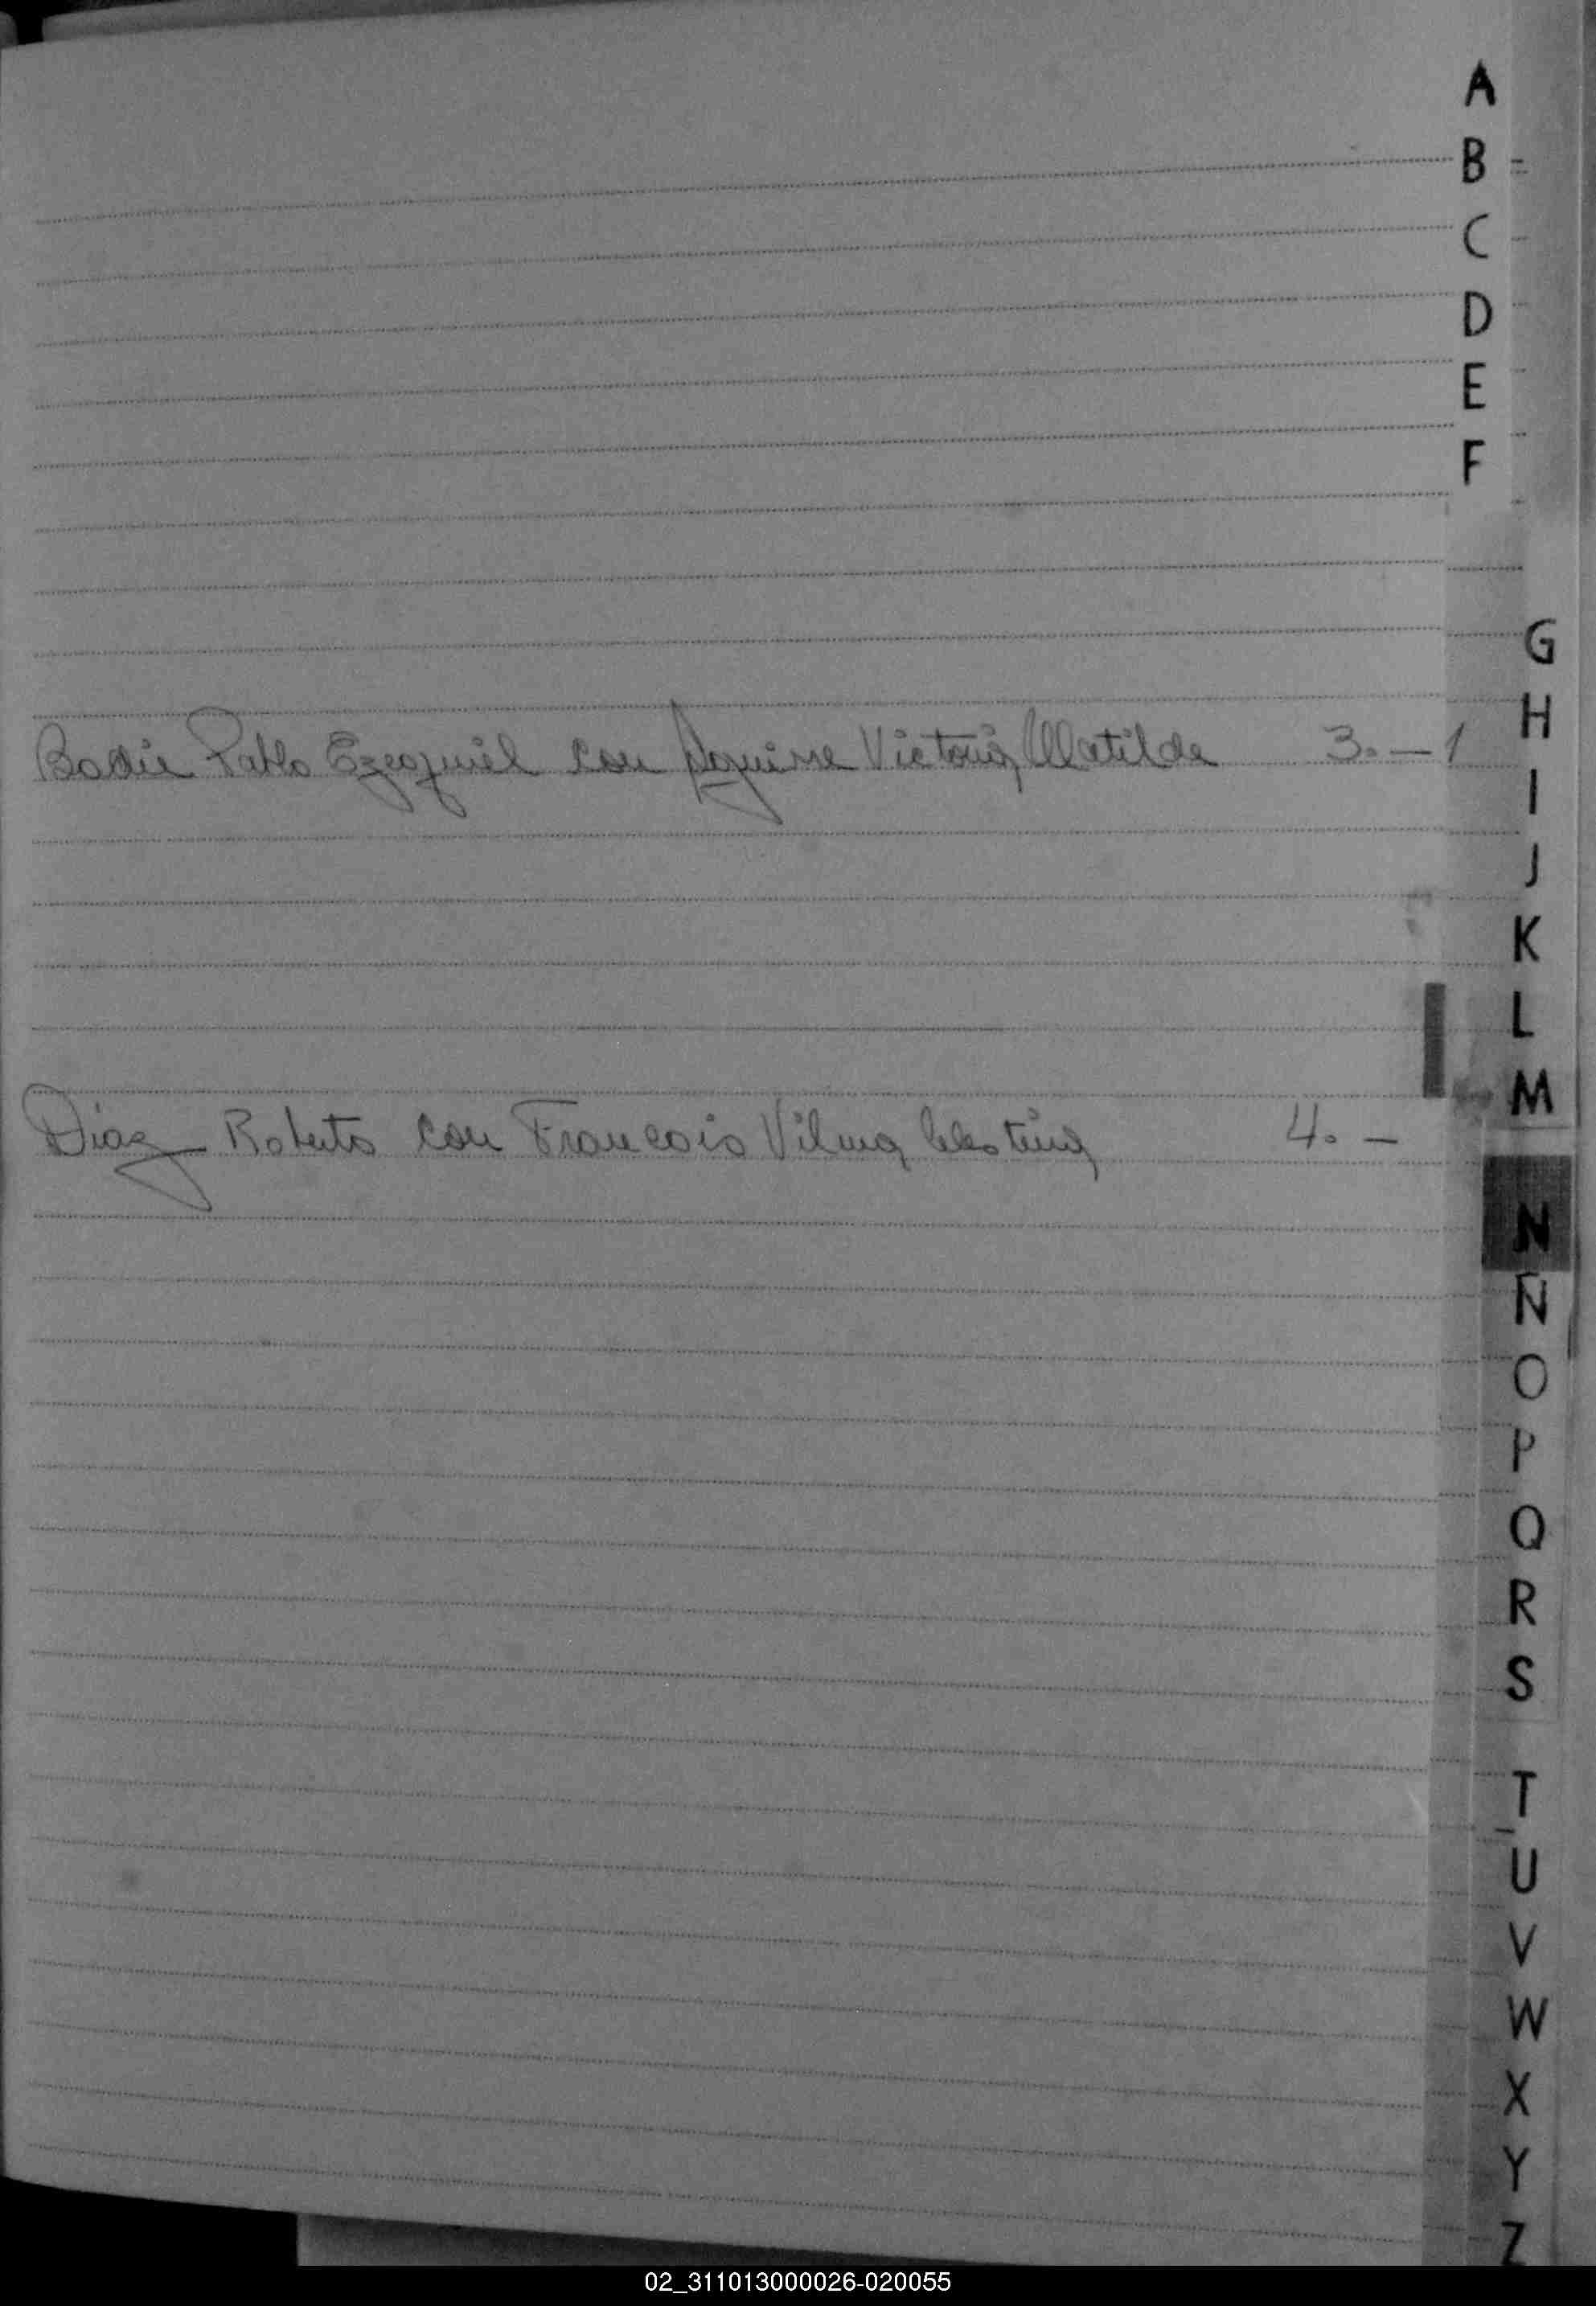 A
B
C
D
E
F
G
H
Badie Pablo Ezequiel con Aguirre Victoria Matilde 3. — 1
I
J
K
L
M
Diaz Roberto con Francois Vilma Celestina 4. —
N
Ñ
O
P
Q
R
S
T
U
V
W
X
Y
Z
02_311013000026-020055